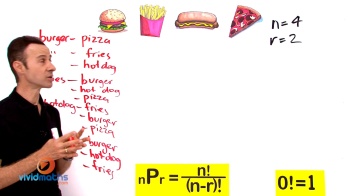 burger - pizza
" - fries
- hotdog
es - burger
- hot dog
- pizza
hotdog - fries
- burger
- pizza
- burger
- hotdog
- fries
n=4
r=2
nPr = n!
(n-r)!
0!=1
vividmaths